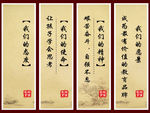 【我们的态度】
【我们的使命】
让孩子学会思考
【我们的精神】
艰苦奋斗，自强不息
【我们的愿景】
成为最有价值的教育品牌